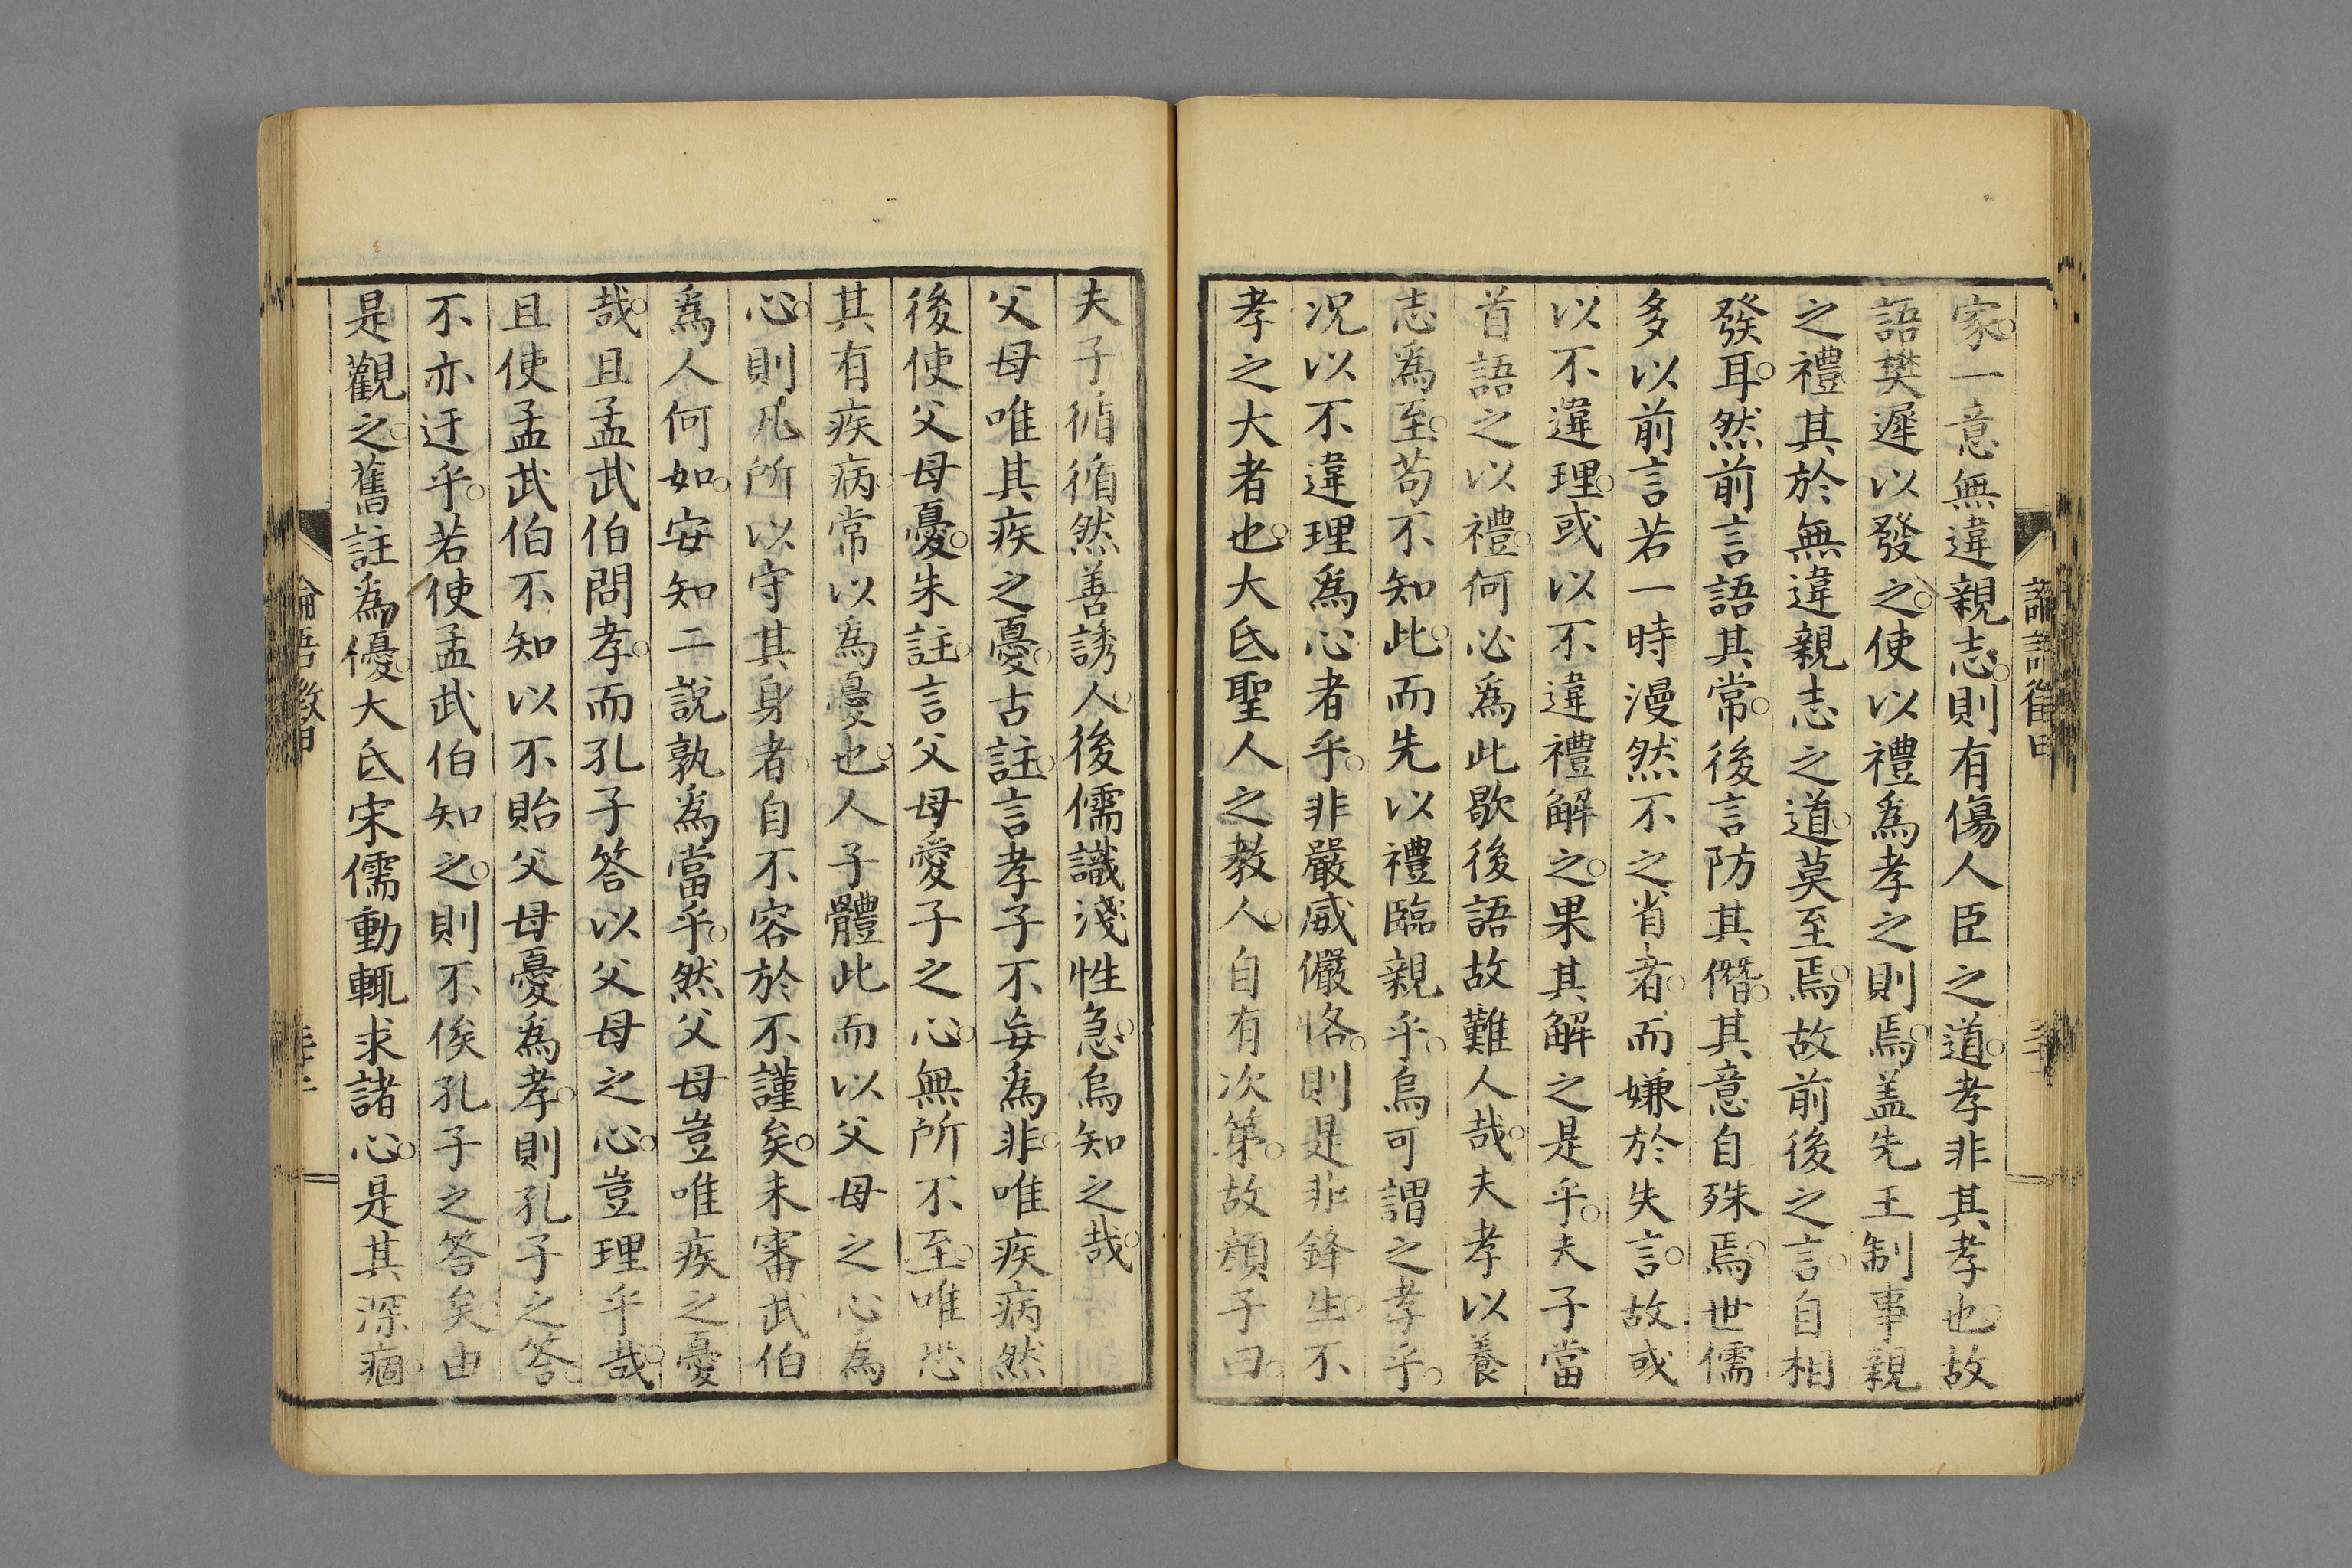 家。一意無違親志。則有傷人臣之道。孝非其孝也。故
語樊遲以發之。使以禮爲孝之則焉。盖先王制事親
之禮。其於無違親志之道。莫至焉。故前後之言。自相
發耳。然前言語其常。後言防其僭。其意自殊焉。世儒
多以前言若一時漫然不之省者。而嫌於失言。故或
以不違理。或以不違禮解之。果其解之是乎。夫子當
首語之以禮。何必爲此歇後語故難人哉。夫孝以養
志爲至。苟不知此。而先以禮臨親乎。烏可謂之孝乎。
况以不違理爲心者乎。非嚴威儼恪。則是非鋒生。不
孝之大者也。大氐聖人之教人。自有次第。故顔子曰。
夫子循循然善誘人。後儒識淺性急。烏知之哉。
父母唯其疾之憂。古註。言孝子不妄爲非。唯疾病然
後使父母憂。朱註。言父母愛子之心。無所不至。唯恐
其有疾病。常以爲憂也。人子體此而以父母之心爲
心。則凡所以守其身者。自不容於不謹矣。未審武伯
爲人何如。安知二說孰爲當乎。然父母豈唯疾之憂
哉。且孟武伯問孝。而孔子答以父母之心。豈理乎哉。
且使孟武伯不知以不貽父母憂爲孝。則孔子之答。
不亦迂乎。若使孟武伯知之。則不俟孔子之答矣。由
是觀之。舊註爲優。大氐宋儒動輒求諸心。是其深痼。
論語徵甲